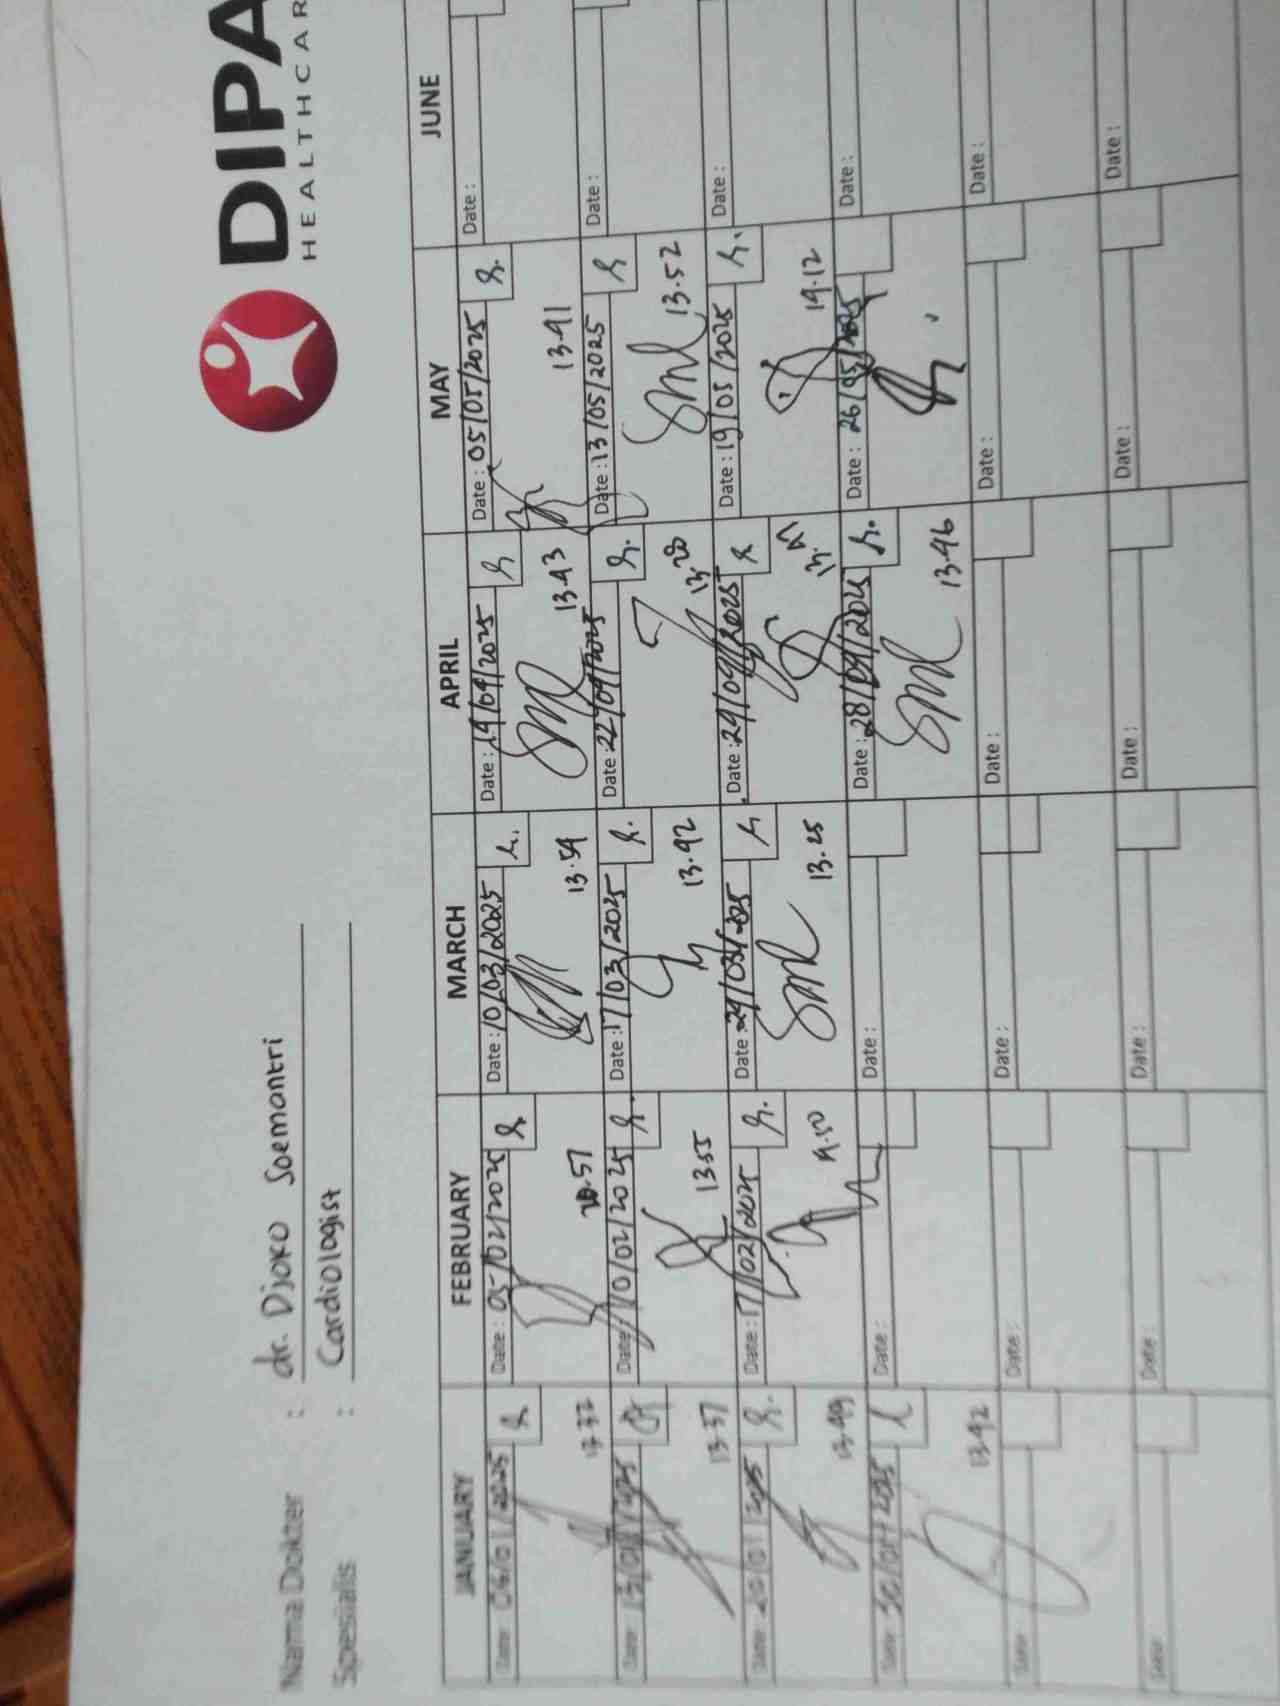 DIPA
HEALTHCAR
Nama Dokter : dr. Djoko Soemantri
Spesialis : Cardiologist
JANUARY FEBRUARY MARCH APRIL MAY JUNE
Date: 06/01/2025 Date: 05/02/2025 Date: 10/03/2025 Date: 14/04/2025 Date: 05/05/2025 Date:
13.54 13.43 13.41
Date: 13/01/2025 Date: 10/02/2025 Date: 17/03/2025 Date: 22/04/2025 Date: 13/05/2025 Date:
13.37 13.55 13.42 13.28 13.52
Date: 20/01/2025 Date: 17/02/2025 Date: 24/03/2025 Date: 24/04/2025 Date: 19/05/2025 Date:
13.49 14.50 13.25 13.47 14.12
Date: 30/01/2025 Date: Date: Date: 28/04/2025 Date: 26/05/2025 Date:
13.42 13.46
Date: Date: Date: Date: Date: Date:
Date: Date: Date: Date: Date: Date: